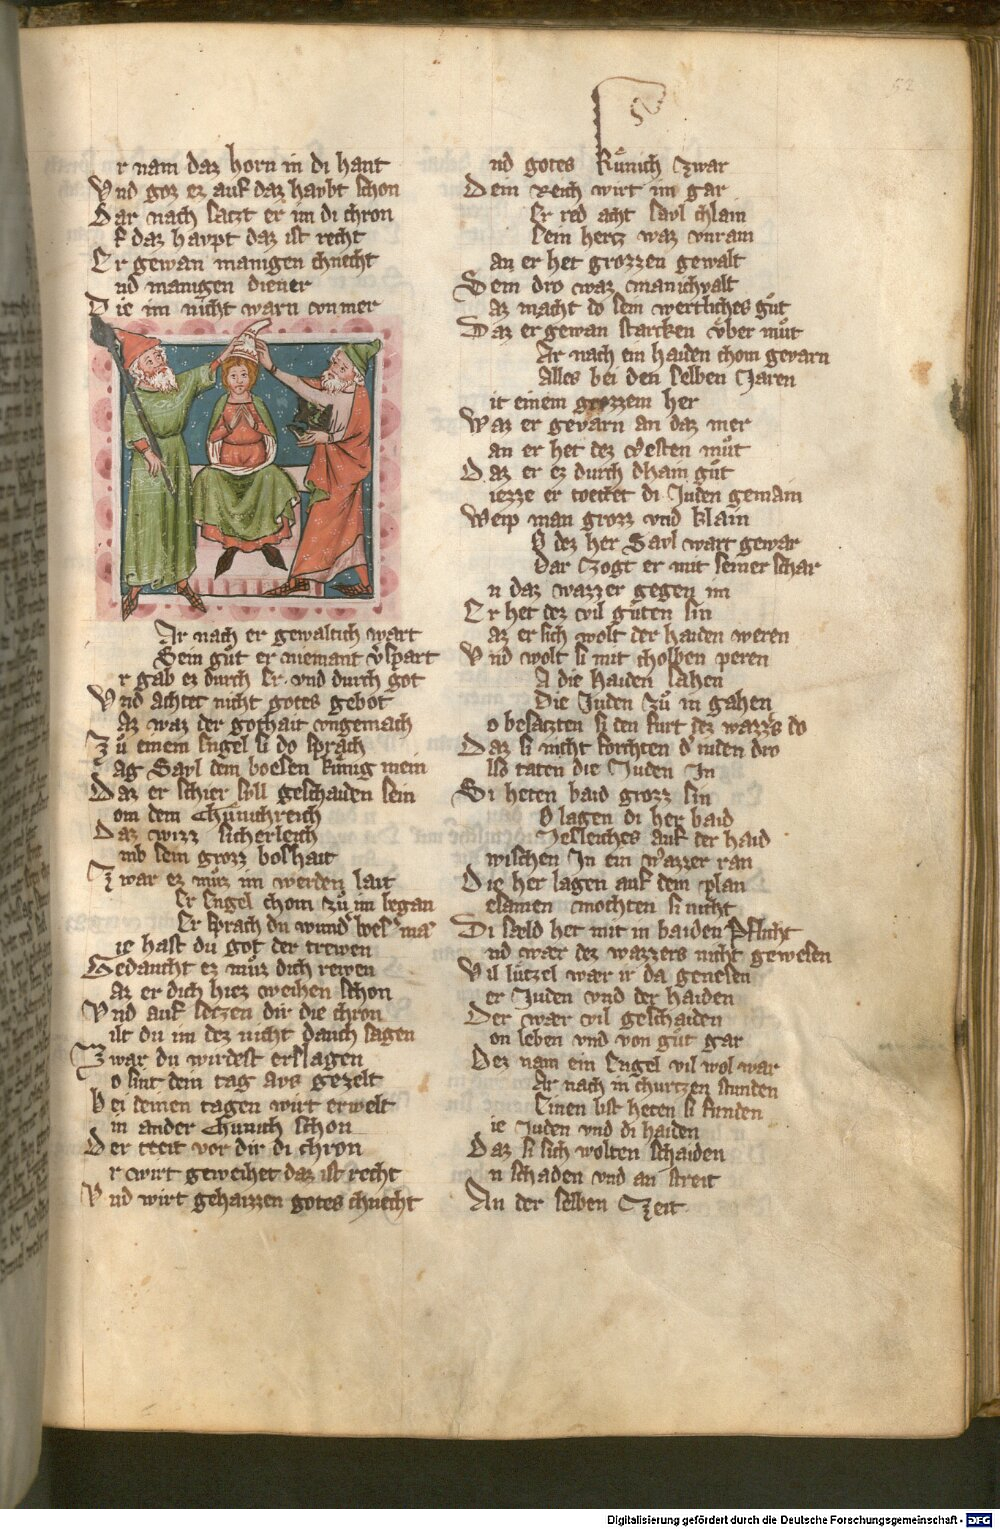 52
r nam daz horn in di hant
Vnd goz ez auf daz havbt schon
Dar nach satzt er im di chron
f daz havpt daz ist recht
Er gewan manigen chnecht
nd manigen diener
Die im nicht warn vnmer
Ar nach er gewaltich wart
Sein gůt er niemant v̉spart
r gab ez durch Er vnd durch got
Vnd achtet nicht gotes gebot
Az waz der gothait vngemach
Zů einem Engel si do sprach
ag Savl dem boesen kůnig mein
Daz er schier syll geschaiden sein
om dem Chůnichreich
Daz wizz sicherleich
mb sein grozz boshait
Zwar ez můz im werden lait
Er Engel chom zů im began
Er sprach du
ie hast du got der trewen
Gedaucht ez můz dich rewen
Az er dich hiez weihen schon
Vnd auf setzen dir die chron
ilt du im dez nicht danch sagen
Zwar du wirdest erslagen
o sint dein tag avs gezelt
Bei deinen tagen wirt erwelt
in ander Chunich schon
Der treit vor dir di chron
r wirt geweihet daz ist recht
Vnd wirt gehaizzen gotes chnecht
nd gotes Kůnich zwar
Dein Reich wirt im gar
Er red acht Savl chlain
Sein hertz waz vnrain
an er het grozzen gewalt
Sein dro waz manichvalt
az macht do sein wertliches gůt
Daz er gewan starcken v̈ber můt
Ar nach ein haiden chom gevarn
Alles bei den selben Jaren
it einem grozzem her
Waz er gevarn an daz mer
an er het dez vesten můt
Daz er ez durch dham gůt
iezze er toettet di Juden gemain
Weip man grozz vnd klain
O dez her Savl wart gewar
Dar Zogt er mit seiner schar
n daz wazzer gegen im
Er het dez vil gůten sin
az er sich wolt der haiden weren
Vnd wolt si mit cholben peren
A die haiden sahen
Die Juden zů in gahen
o besatzten si den furt dez wazz̉s do
Daz si nicht forchten d̉ iuden dro
lso taten die Juden In
Si heten baid grozz sin
O lagen di her baid
Jetsleiches auf der haid
wischen In ein wazzer ran
Die her lagen auf dem plan
esamen mochten si nicht
Di sæld het mit in baiden Pflicht
nd wær dez wazzers nicht gewesen
Vil lůtzel wær ir da genesen
er Juden vnd der haiden
Der wær vil geschaiden
on leben vnd von gůt gar
Dez nam ein Engel vil wol war
Ar nach in churtzen stunden
Einen list heten si funden
ie Juden vnd di haiden
Daz si sich wolten schaiden
n schaden vnd an streit
An der selben Zeit
Digitalisierung gefördert durch die Deutsche Forschungsgemeinschaft - DFG